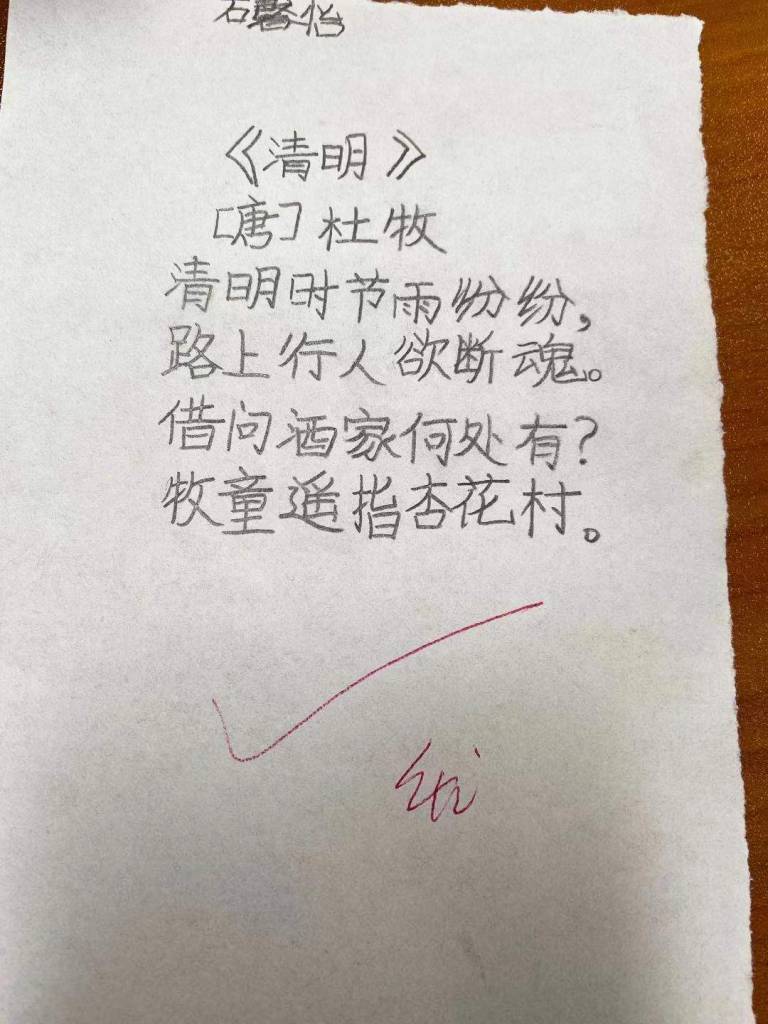 石馨怡
《清明》
[唐]杜牧
清明时节雨纷纷,
路上行人欲断魂。
借问酒家何处有?
牧童遥指杏花村。